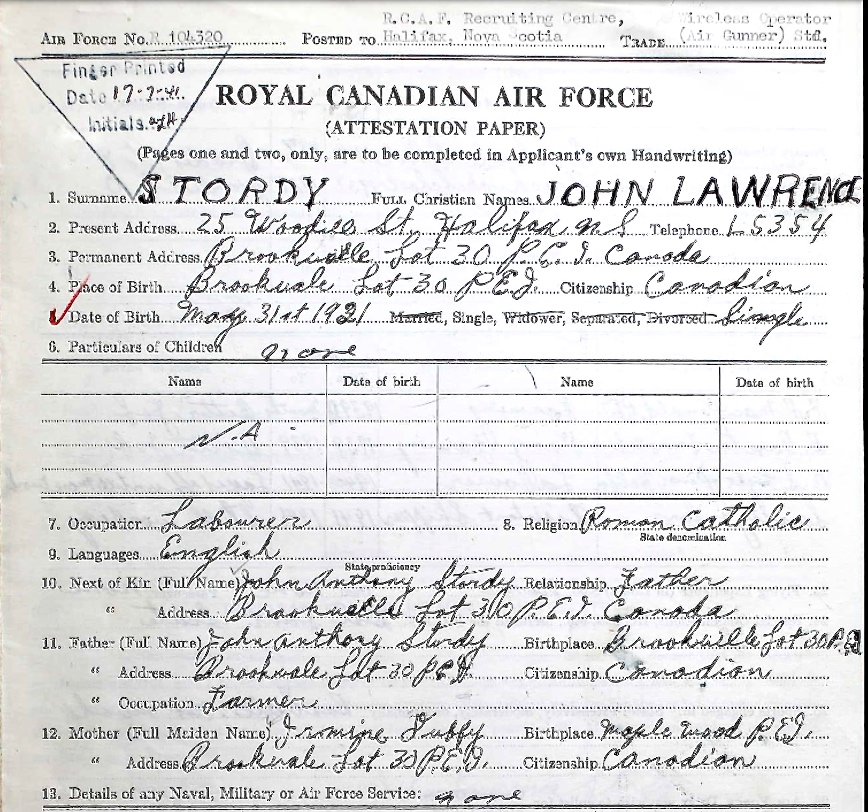 R.C.A.F. Recruiting Centre, Wireless Operator
AIR FORCE No. R 104320 POSTED TO Halifax, Nova Scotia TRADE (Air Gunner) Std.
Finger Printed
Date 17-7-41.
Initials
ROYAL CANADIAN AIR FORCE
(ATTESTATION PAPER)
(Pages one and two, only, are to be completed in Applicant's own Handwriting)
1. Surname STORDY FULL Christian Names JOHN LAWRENCE
2. Present Address 25 St. Halifax N S Telephone L5354
3. Permanent Address Brookvale Lot 30 P.E.I. Canada
4. Place of Birth Brookvale Lot 30 P.E.I. Citizenship Canadian
Date of Birth May 31st 1921 Married, Single, Widower, Separated, Divorced Single
6. Particulars of Children none
Name Date of birth Name Date of birth
N.A.
7. Occupation Labourer 8. Religion Roman Catholic
State denomination
9. Languages English
State proficiency
10. Next of Kin (Full Name) John Anthony Stordy Relationship Father
" Address Brookvale Lot 30 P.E.I. Canada
11. Father (Full Name) John Anthony Stordy Birthplace Brookville Lot 30 P.E.I
" Address Brookvale Lot 30 P.E.I. Citizenship Canadian
" Occupation Farmer
12. Mother (Full Maiden Name) Irmine Duffy Birthplace Maple Wood P.E.I.
" Address Brookvale Lot 30 P.E.I. Citizenship Canadian
13. Details of any Naval, Military or Air Force Service: none